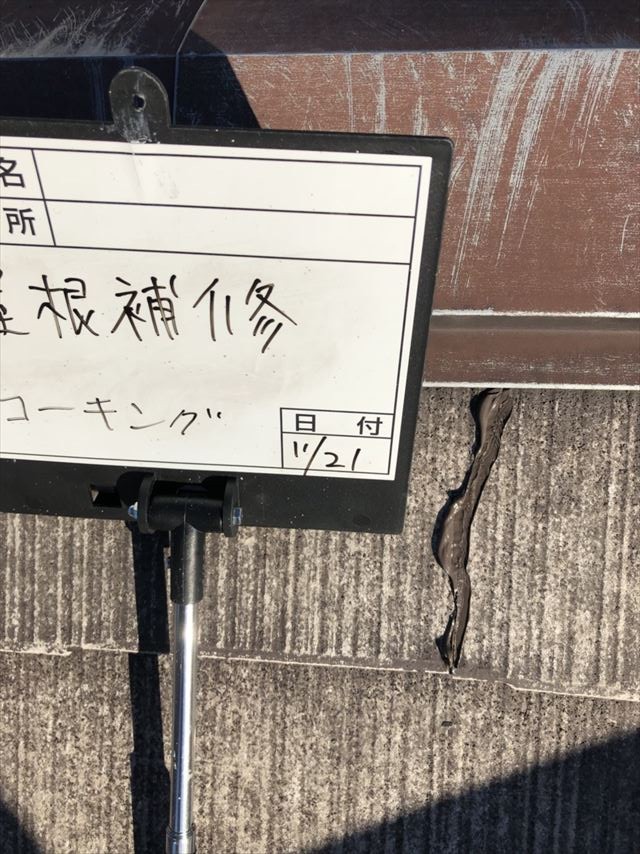 名
所
屋根補修
コーキング
日 付
11/21